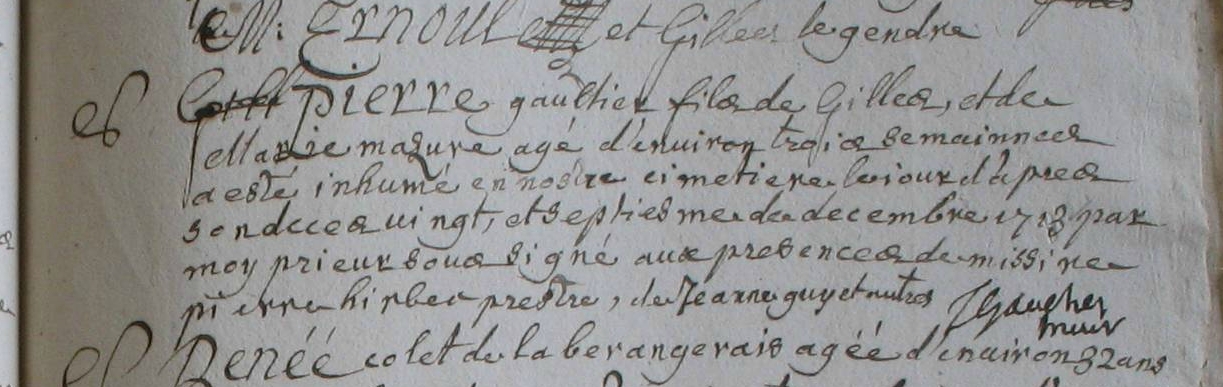 M: Ernoul et Gillees legendre
es Pierre gaultier filz de Gilles, et de
Marie mazure agé d'enuiron trois semainnees
a esté inhumé en nostre cimetiere le iour d'apres
son decces uingt, et septiesme de decembre 1713 par
moy prieur sous signé aux presencees de missire
pierre hirbec prestre, de Jeanne guy et autres JGaucher
es Renéé colet de la berangerais agéé d'enuiron 32 ans